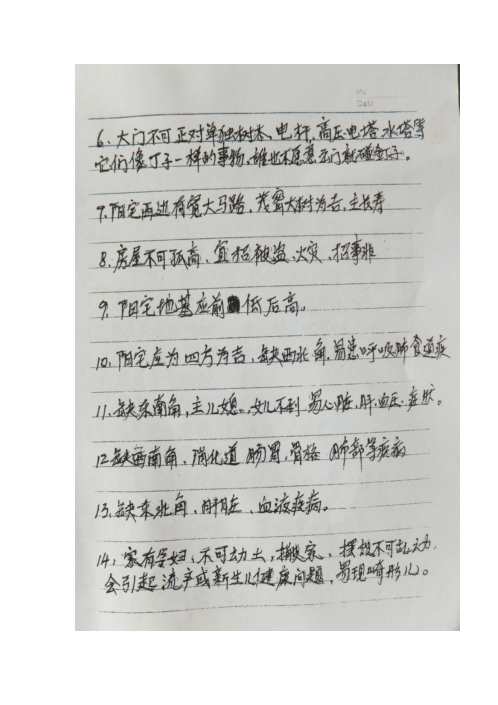 No
Date
6、大门不可正对单独树木、电杆、高压电塔水塔等
它们像丁子一样的事物、谁也不愿意出门就碰钉子。
7.阳宅两边有宽大马路,茂密大树为吉,主长寿
8、房屋不可孤高、宜招被盗、火灾、招事非
9、阳宅地基应前低后高。
10、阳宅应为四方为吉、缺西北角.易患呼吸肺食道疾
11、缺东南角,主儿媳、女儿不利 易心脏、肝、血压、症状。
12 缺西南角、消化道 肠胃、骨骼 肺部等疾病
13、缺东北角、肝脏、血液疾病。
14、家有孕妇、不可动土、搬家、摆设不可乱动.
会引起流产或新生儿健康问题,易现畸形儿。